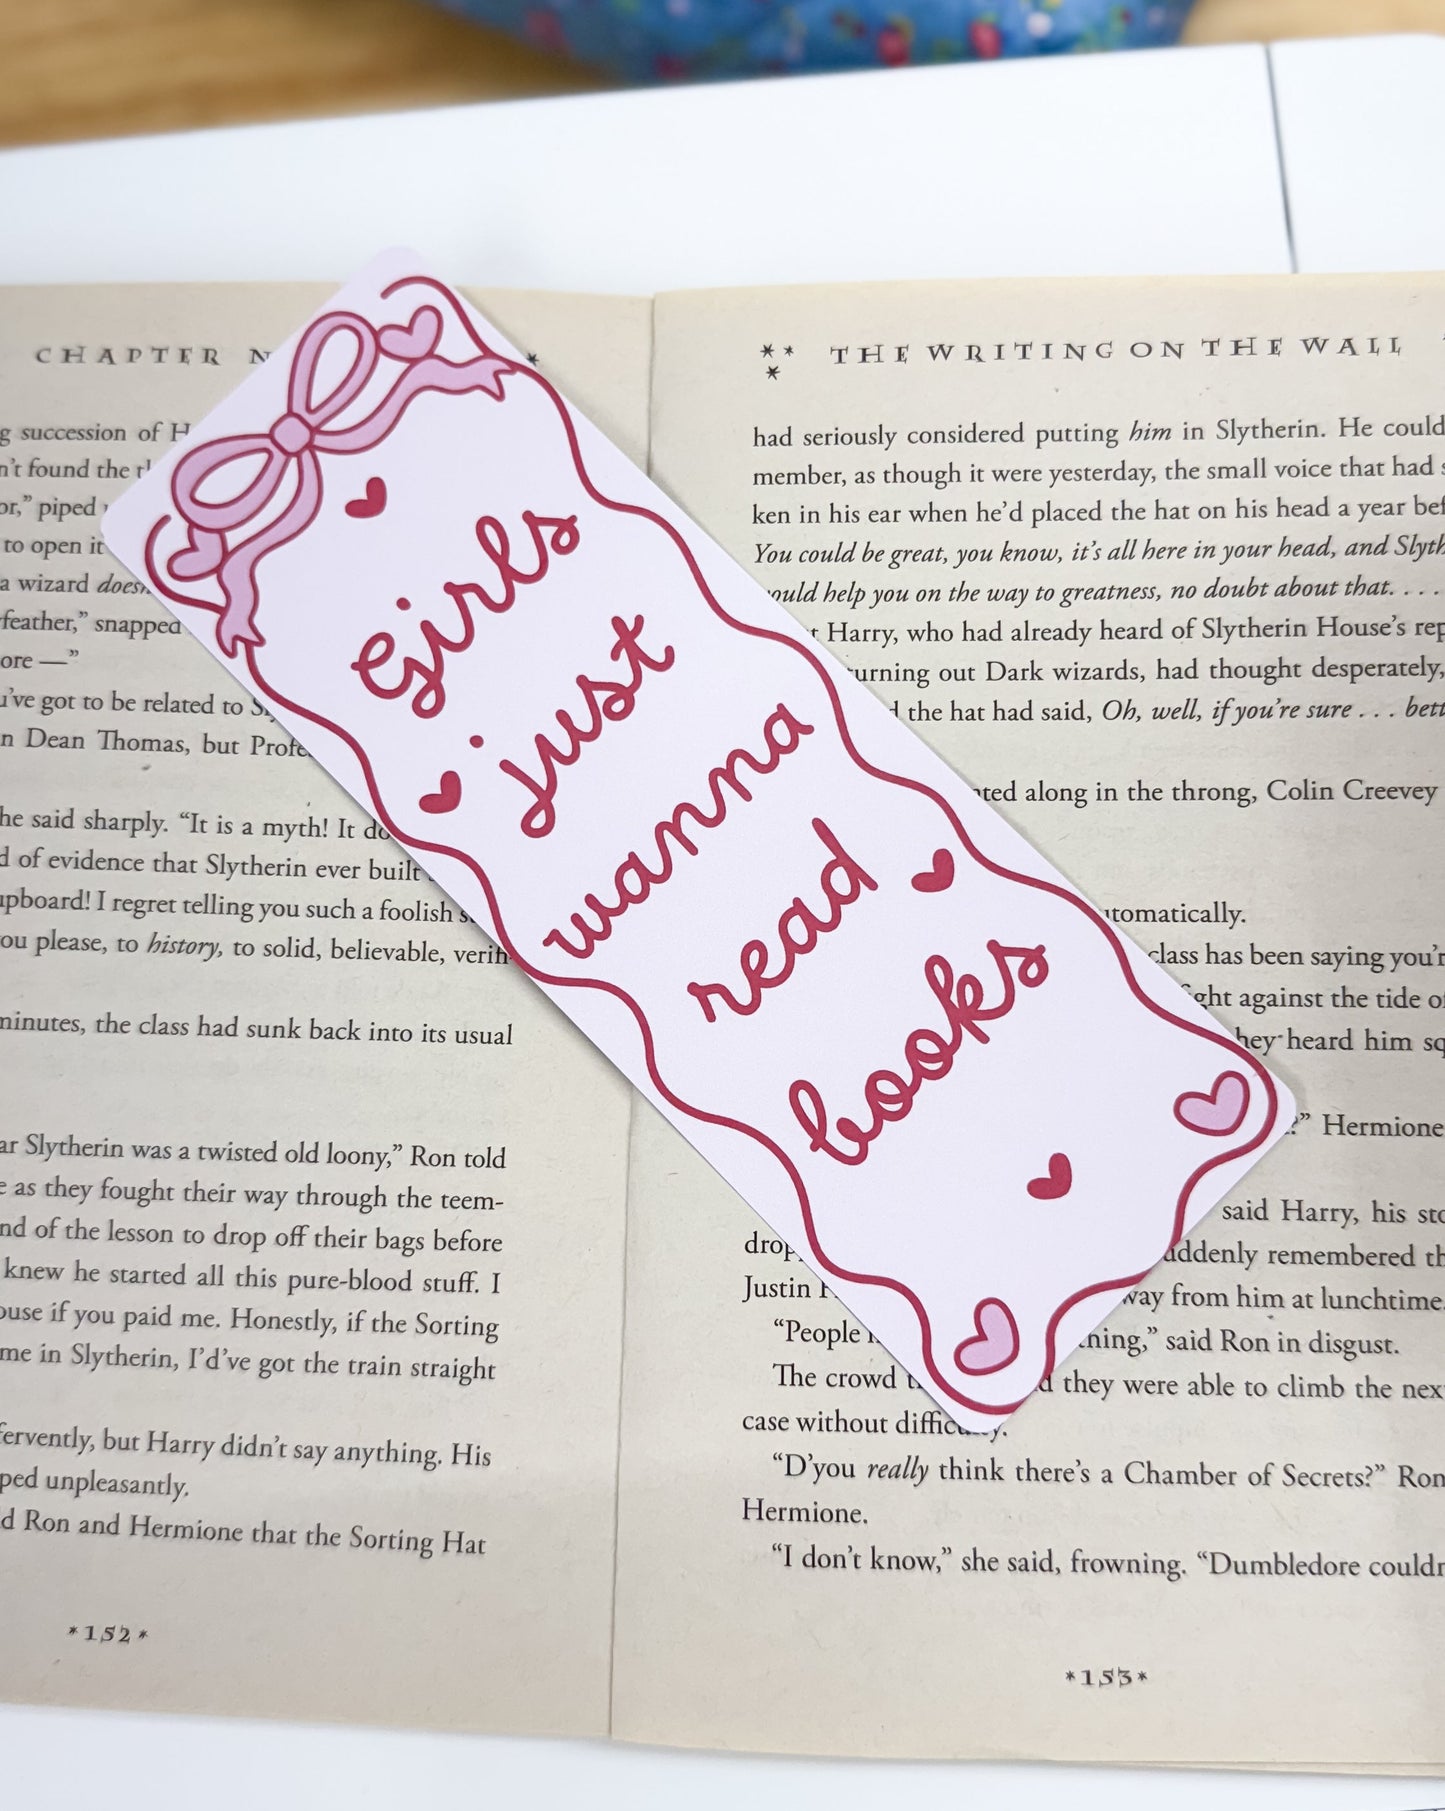 CHAPTER
g succession of
n't found the
or,” piped
to open it
a wizard
feather,” snapped
ore —”
u've got to be related to
n Dean Thomas, but
he said sharply. “It is a myth! It
d of evidence that Slytherin ever built
upboard! I regret telling you such a foolish
ou please, to history, to solid, believable,
minutes, the class had sunk back into its usual
ar Slytherin was a twisted old loony,” Ron told
e as they fought their way through the teem-
nd of the lesson to drop off their bags before
knew he started all this pure-blood stuff. I
ouse if you paid me. Honestly, if the Sorting
me in Slytherin, I'd've got the train straight
fervently, but Harry didn't say anything. His
ped unpleasantly.
d Ron and Hermione that the Sorting Hat
*152*
Girls
just
wanna
read
books
THE WRITING ON THE WALL
had seriously considered putting him in Slytherin. He could
member, as though it were yesterday, the small voice that had
ken in his ear when he'd placed the hat on his head a year
You could be great, you know, it's all here in your head, and
help you on the way to greatness, no doubt about that. . . .
Harry, who had already heard of Slytherin House's
urning out Dark wizards, had thought desperately,
the hat had said, Oh, well, if you're sure . . .
ted along in the throng, Colin Creevey
tomatically.
class has been saying
ght against the tide
hey heard him
?” Hermione
said Harry, his
uddenly remembered
Justin
way from him at lunchtime.
“People
thing,” said Ron in disgust.
The crowd
they were able to climb the
case without
“D'you really think there's a Chamber of Secrets?” Ron
Hermione.
“I don't know,” she said, frowning. “Dumbledore
*153*